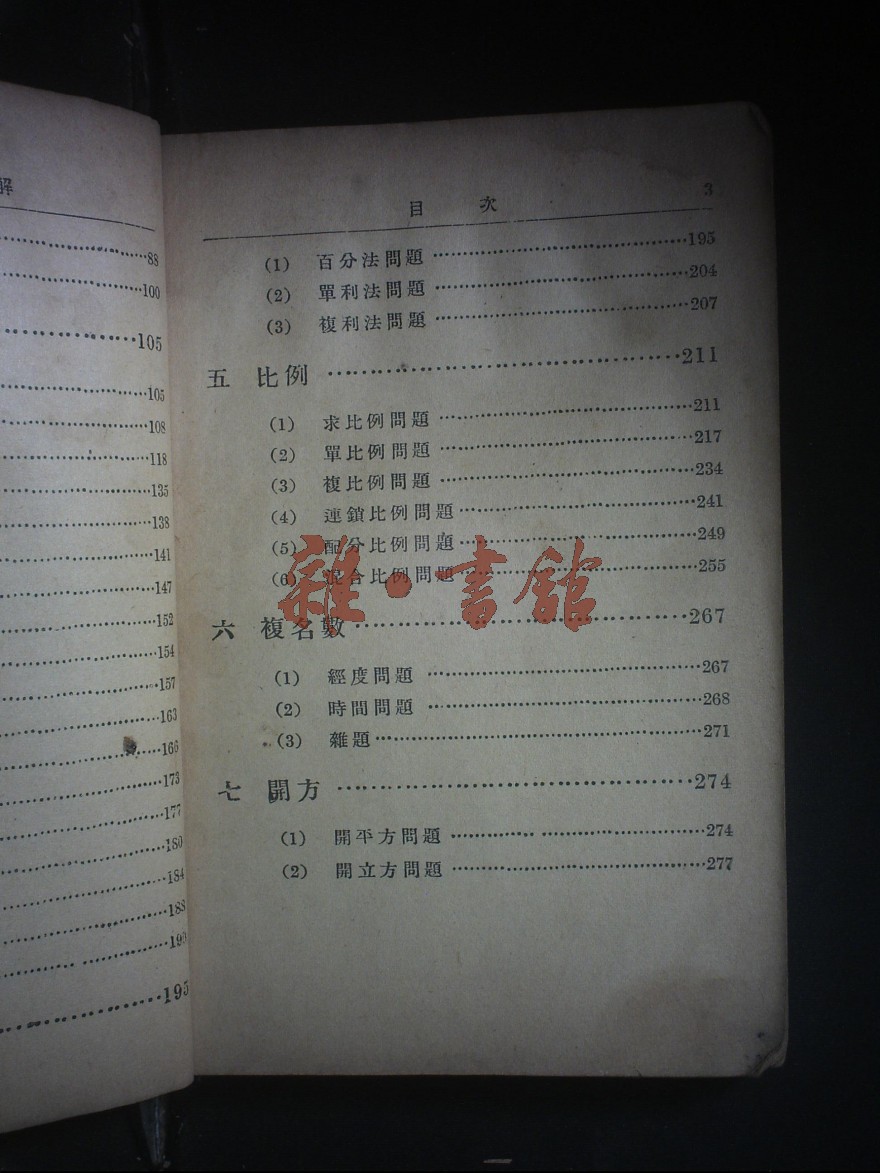 解
88
100
105
105
108
118
135
138
141
147
152
154
157
163
166
173
177
180
184
188
195
目 次 3
(1) 百分法問題 195
(2) 單利法問題 204
(3) 複利法問題 207
五 比例 211
(1) 求比例問題 211
(2) 單比例問題 217
(3) 複比例問題 234
(4) 連鎖比例問題 241
(5) 配分比例問題 249
(6) 混合比例問題 255
雜·書館
六 複名數 267
(1) 經度問題 267
(2) 時間問題 268
(3) 雜題 271
七 開方 274
(1) 開平方問題 274
(2) 開立方問題 277